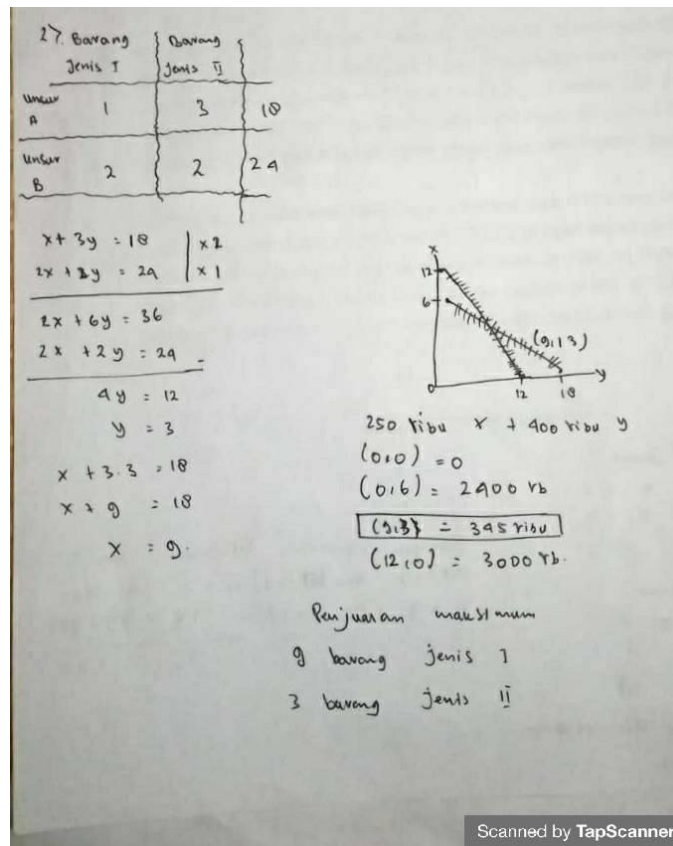 27. Barang Jenis I Barang Jenis II
Unsur A 1 3 18
Unsur B 2 2 24
x + 3y = 18 | x 2
2x + 2y = 24 | x 1
2x + 6y = 36
2x + 2y = 24 -
4y = 12
y = 3
x + 3.3 = 18
x + 9 = 18
x = 9.
x
12
6
(9,3)
0
12
18
y
250 ribu x + 400 ribu y
(0,0) = 0
(0,6) = 2400 rb
(9,3) = 345 ribu
(12,0) = 3000 rb.
Penjualan maksimum
9 barang jenis I
3 barang jenis II
Scanned by TapScanner